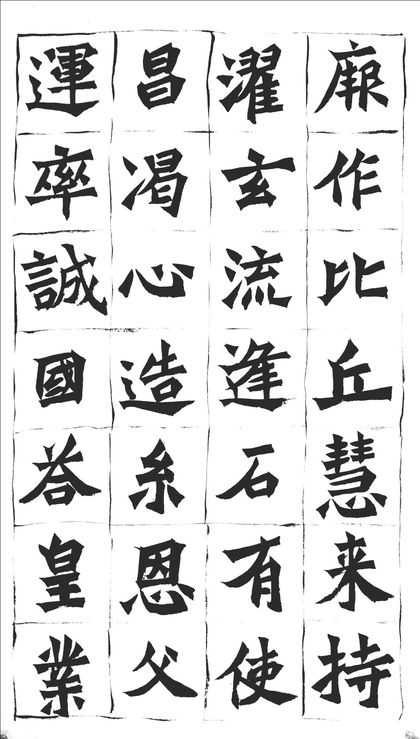 厥作比丘慧来持
濯玄流逢石有使
昌渴心造糸恩父
運率誠國荅皇業